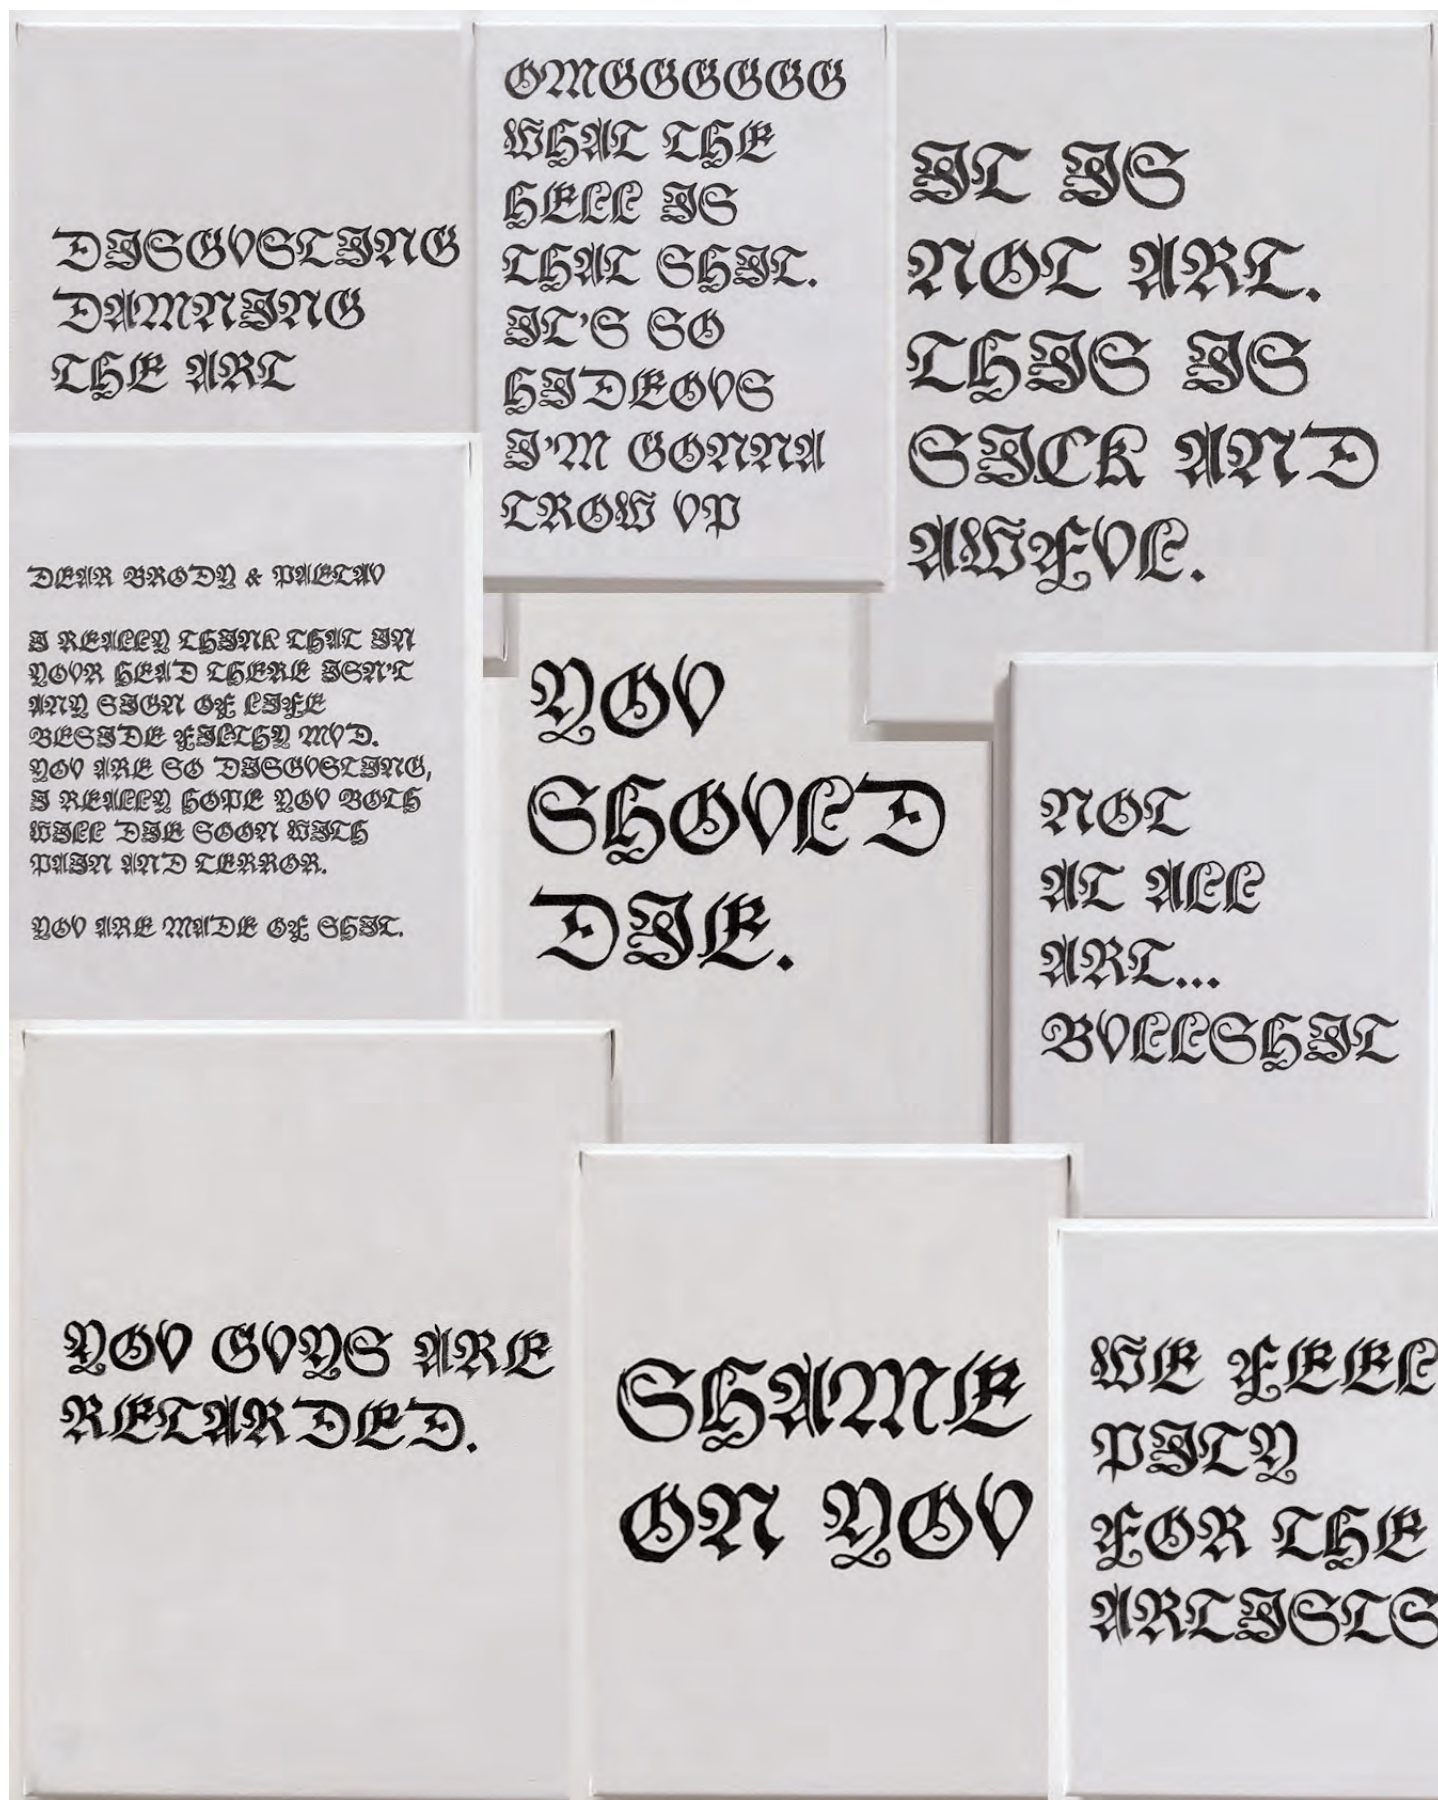 DISGVSTING
DAMNING
THE ART
OMGGGGGGG
WHAT THE
HELL IS
THAT SHIT.
IT'S SO
HIDEOVS
I'M GONNA
TROW VP
IT IS
NOT ART.
THIS IS
SICK AND
AWFVL.
DEAR BRODY & PAETAV
I REALLY THINK THAT IN
YOVR HEAD THERE ISN'T
ANY SIGN OF LIFE
BESIDE FILTHY MVD.
YOV ARE SO DISGVSTING,
I REALLY HOPE YOV BOTH
WILL DIE SOON WITH
PAIN AND TERROR.
YOV ARE MADE OF SHIT.
YOV
SHOVLD
DIE.
NOT
AT ALL
ART...
BVLLSHIT
YOV GVYS ARE
RETARDED.
SHAME
ON YOV
WE FEEL
PITY
FOR THE
ARTISTS